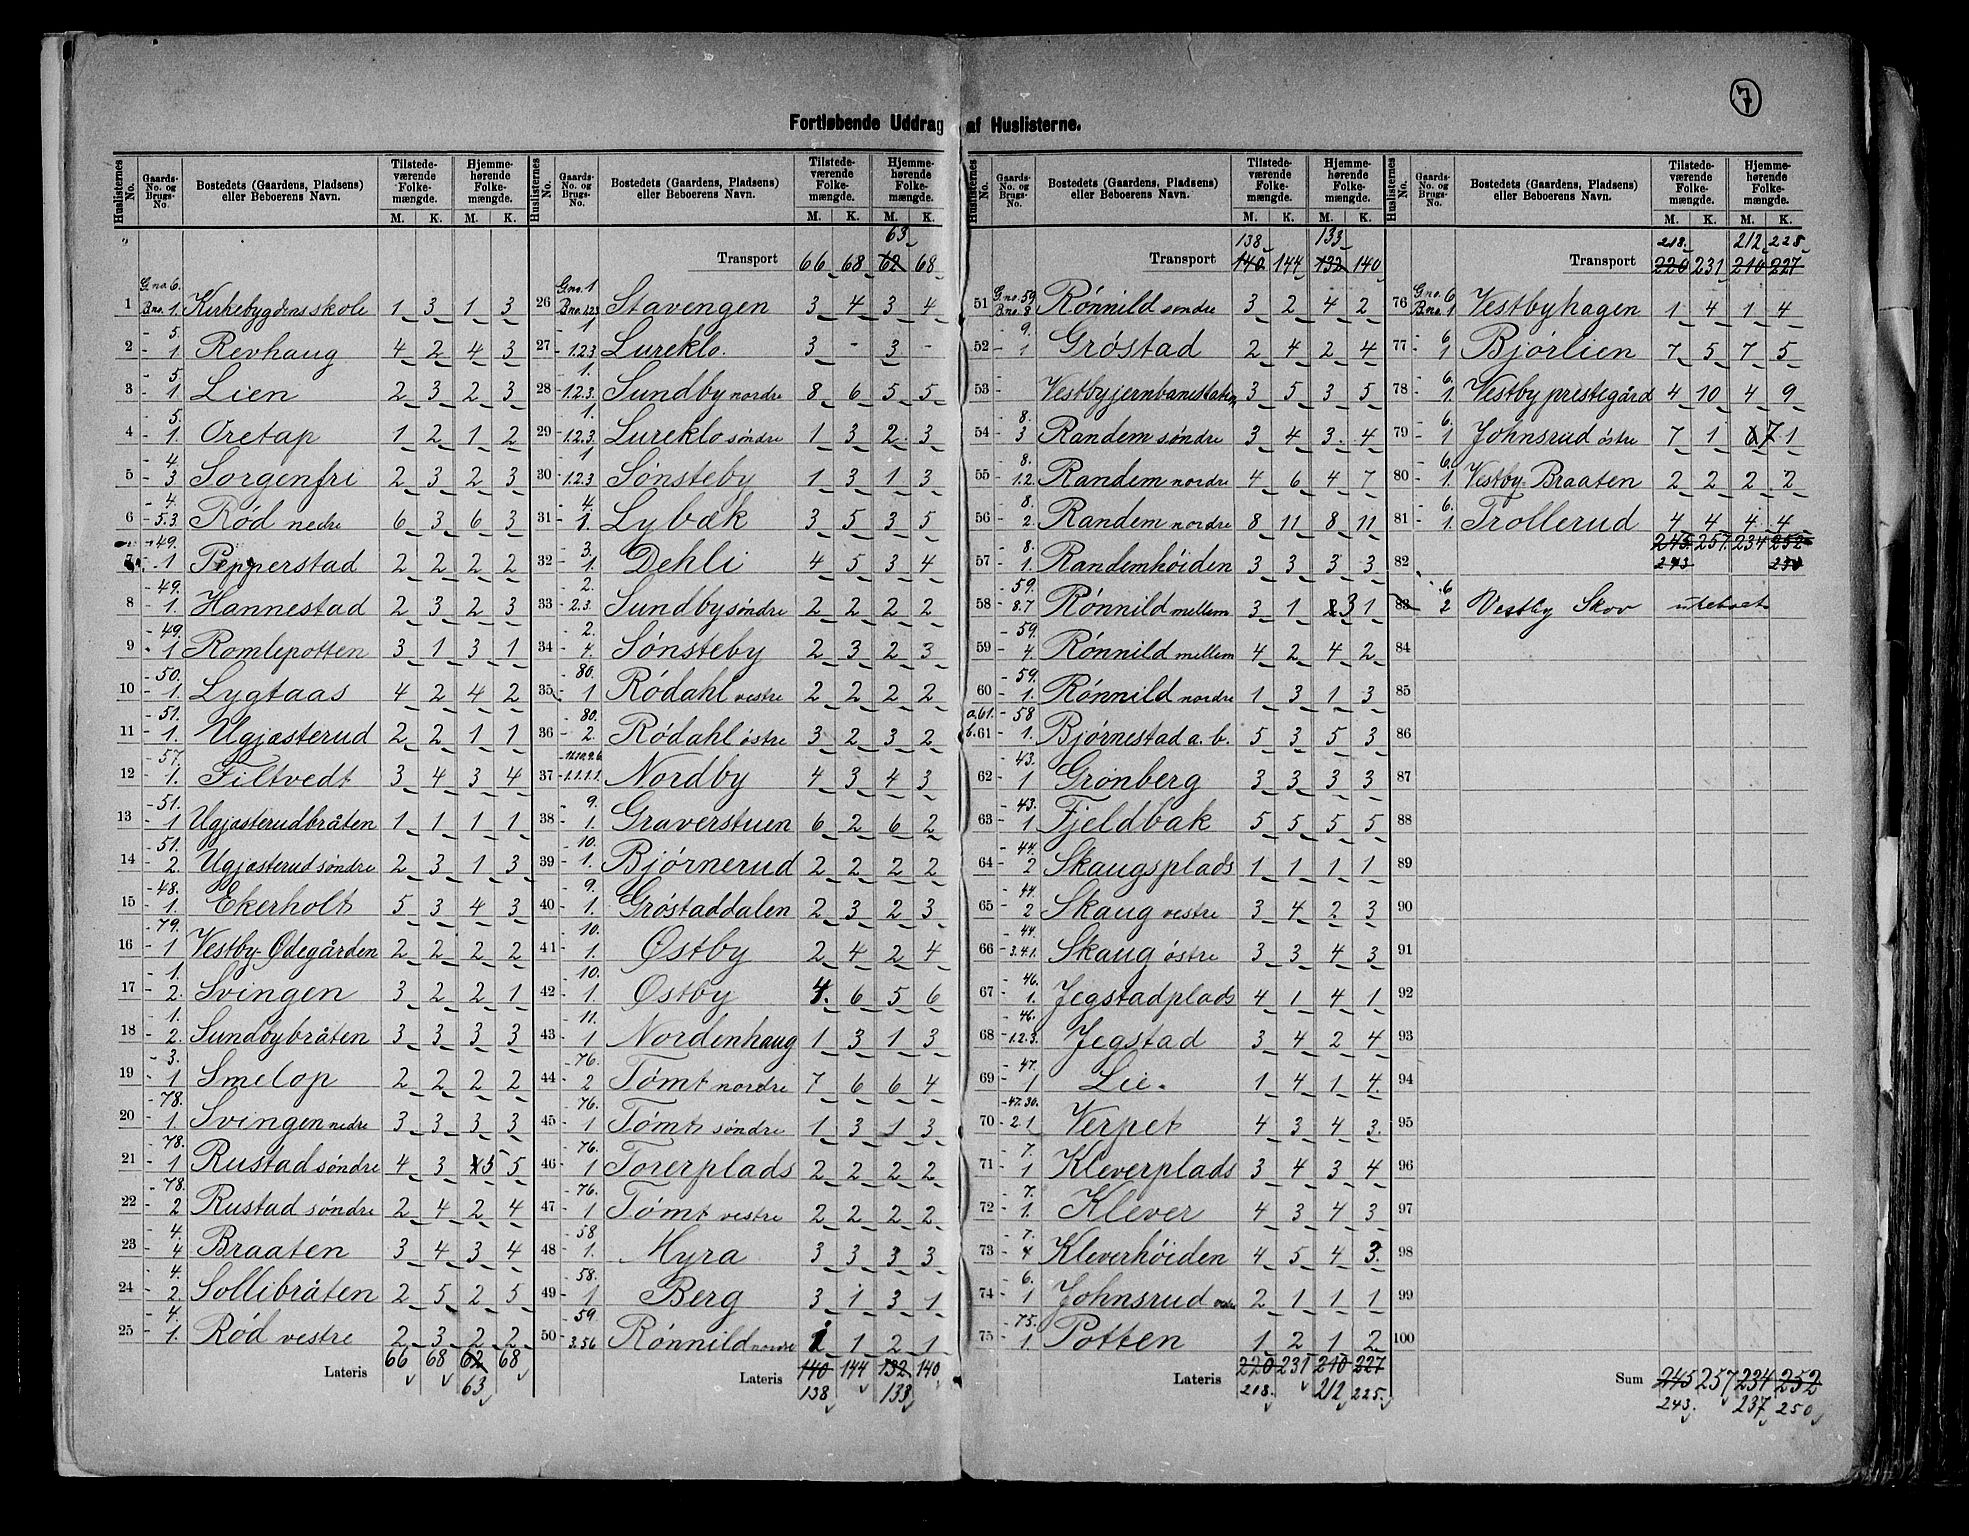 7
Fortløbende Uddrag af Huslisterne.
Huslisternes No. Gaards-No. og Brugs-No. Bostedets (Gaardens, Pladsens) eller Beboerens Navn. Tilstedeværende Folkemængde. M. K. Hjemmehørende Folkemængde. M. K.
1 G.no. 6. B.no. 1. Kirkebygdens skole 1 3 1 3
2 - 5. - 1 Revhaug 4 2 4 3
3 - 5. - 1 Lien 2 3 2 3
4 - 5. - 1. Oretap 1 2 1 2
5 - 4. - 3 Sorgenfri 2 3 2 3
6 - 4. - 5.3 Rød nedre 6 3 6 3
7 - 49. - 1 Pepperstad 2 2 2 2
8 - 49. - 1. Hannestad 2 3 2 3
9 - 49. - 1 Romlepotten 3 1 3 1
10 - 50. - 1. Lygtaas 4 2 4 2
11 - 51. - 1. Ugjæsterud 2 2 1 1
12 - 57. - 1. Filtvedt 3 4 3 4
13 - 51. - 1 Ugjæsterudbråten 1 1 1 1
14 - 51. - 2. Ugjæsterud søndre 2 3 1 3
15 - 48. - 1. Ekerholt 5 3 4 3
16 - 79. - 1 Vestby Ødegården 2 2 2 2
17 - 1. - 2. Svingen 3 2 2 1
18 - 1. - 2. Sundbybråten 3 3 3 3
19 - 3. - 1 Smelop 2 2 2 2
20 - 78. - 1. Svingen nedre 3 3 3 3
21 - 78. - 1 Rustad søndre 4 3 5 5
22 - 78. - 2 Rustad søndre 2 4 2 4
23 - 4. - 4 Braaten 3 4 3 4
24 - 4. - 2 Sollibråten 2 5 2 5
25 - 4. - 1. Rød vestre 2 3 2 2
Lateris 66 68 62 68
63
Huslisternes No. Gaards-No. og Brugs-No. Bostedets (Gaardens, Pladsens) eller Beboerens Navn. Tilstedeværende Folkemængde. M. K. Hjemmehørende Folkemængde. M. K.
63
Transport 66 68 62 68
26 G.no. 1 B.no. 1.2.3 Stavengen 3 4 3 4
27 - 1 - 1.2.3 Lureklo. 3 - 3 -
28 - 1. - 1.2.3. Sundby nordre 8 6 5 5
29 - 1. - 1.2.3. Lureklo søndre 1 3 2 3
30 - 1 - 1.2.3 Sønsteby 1 3 1 3
31 - 4. - 1. Lybæk 3 5 3 5
32 - 3. - 1. Dehli 4 5 3 4
33 - 2. - 2.3. Sundby søndre 2 2 2 2
34 - 2. - 4. Sønsteby 2 3 2 3
35 - 80. - 1 Rødahl vestre 2 2 2 2
36 - 80. - 2. Rødahl østre 3 2 3 2
37 - 11.10.9.6. - 1.1.1.1. Nordby 4 3 4 3
38 - 9. - 1. Graverstuen 6 2 6 2
39 - 10. - 1. Bjørnerud 2 2 2 2
40 - 9. - 1. Grøstaddalen 2 3 2 3
41 - 10. - 1. Østby 2 4 2 4
42 - 10. - 1 Østby 4. 6 5 6
43 - 11. - 1 Nordenhaug 1 3 1 3
44 - 76. - 2 Tømt nordre 7 6 6 4
45 - 76. - 1 Tømt søndre 1 3 1 3
46 - 76. - 1 Torerplads 2 2 2 2
47 - 76. - 1 Tømt vestre 2 2 2 2
48 - 58 - 1. Myra 3 3 3 3
49 - 58. - 1 Berg 3 1 3 1
50 - 59 - 3.56 Rønnild nordre 1 1 2 1
Lateris 140 144 132 140
138 133
Huslisternes No. Gaards-No. og Brugs-No. Bostedets (Gaardens, Pladsens) eller Beboerens Navn. Tilstedeværende Folkemængde. M. K. Hjemmehørende Folkemængde. M. K.
138 133
Transport 140 144 132 140
51 G.no. 59 B.no. 8 Rønnild søndre 3 2 4 2
52 - 9. - 1 Grøstad 2 4 2 4
53 - Vestby jernbanestation 3 5 3 5
54 - 8. - 3 Randem søndre 3 4 3 4
55 - 8. - 1.2 Randem nordre 4 6 4 7
56 - 8. - 2 Randem nordre 8 11 8 11
57 - 8. - 1. Randemhøiden 3 3 3 3
58 - 59. - 8.7 Rønnild mellem 3 1 2 3 1
59 - 59. - 4. Rønnild mellem 4 2 4 2
60 - 59. - 1. Rønnild nordre 1 3 1 3
a.61. b.61 - 58 - 1. Bjørnestad a. b. 5 3 5 3
62 - 43. - 1 Grønberg 3 3 3 3
63 - 43. - 1 Fjeldbak 5 5 5 5
64 - 44. - 2 Skaugsplads 1 1 1 1
65 - 44. - 2 Skaug vestre 3 4 2 3
66 - 44. - 3.4.1. Skaug østre 3 3 4 3
67 - 46. - 1. Jegstadplads 4 1 4 1
68 - 46. - 1.2.3. Jegstad 3 4 2 4
69 - 47. - 1 Lie. 1 4 1 4
70 - 47.30. - 2.1 Verpet 4 3 4 3
71 - 7. - 1 Kleverplads 3 4 3 4
72 - 7. - 1. Klever 4 3 4 3
73 - 7. - 4 Kleverhøiden 4 5 4 3
74 - 6. - 1 Johnsrud 2 1 1 1
75 - 75. - 1. Potten 1 2 1 2
Lateris 220 231 210 227
218. 212 225.
Huslisternes No. Gaards-No. og Brugs-No. Bostedets (Gaardens, Pladsens) eller Beboerens Navn. Tilstedeværende Folkemængde. M. K. Hjemmehørende Folkemængde. M. K.
218. 212 225
Transport 220 231 210 227
76 G.no. 6 B.no. 1 Vestbyhagen 1 4 1 4
77 - 6. - 1 Bjørlien 7 5 7 5
78 - 6. - 1. Vestby prestegård 4 10 4 9
79 - 6. - 1 Johnsrud østre 7 1 6 7 1
80 - 6. - 1. Vestby Braaten 2 2 2 2
81 - 6. - 1. Trollerud 4 4 4 4
245. 257. 234 252
82 243
83 - 6 2 Vestby Skov ubeboet
84
85
86
87
88
89
90
91
92
93
94
95
96
97
98
99
100
Sum 245 257 234 252
243. 237 250